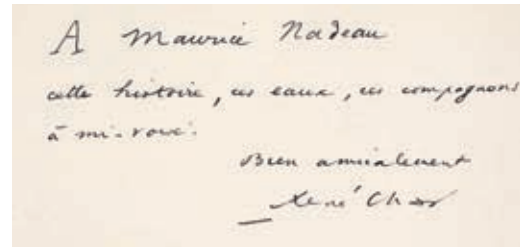 A Maurice Nadeau
cette histoire, ces eaux, ces compagnons
à mi-voix.
Bien amicalement
René Char